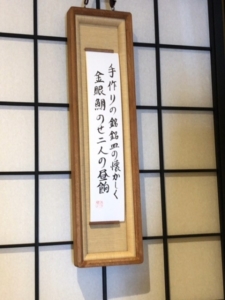 手作りの銘銘皿の懐かしく
金眼鯛のせ二人の昼餉